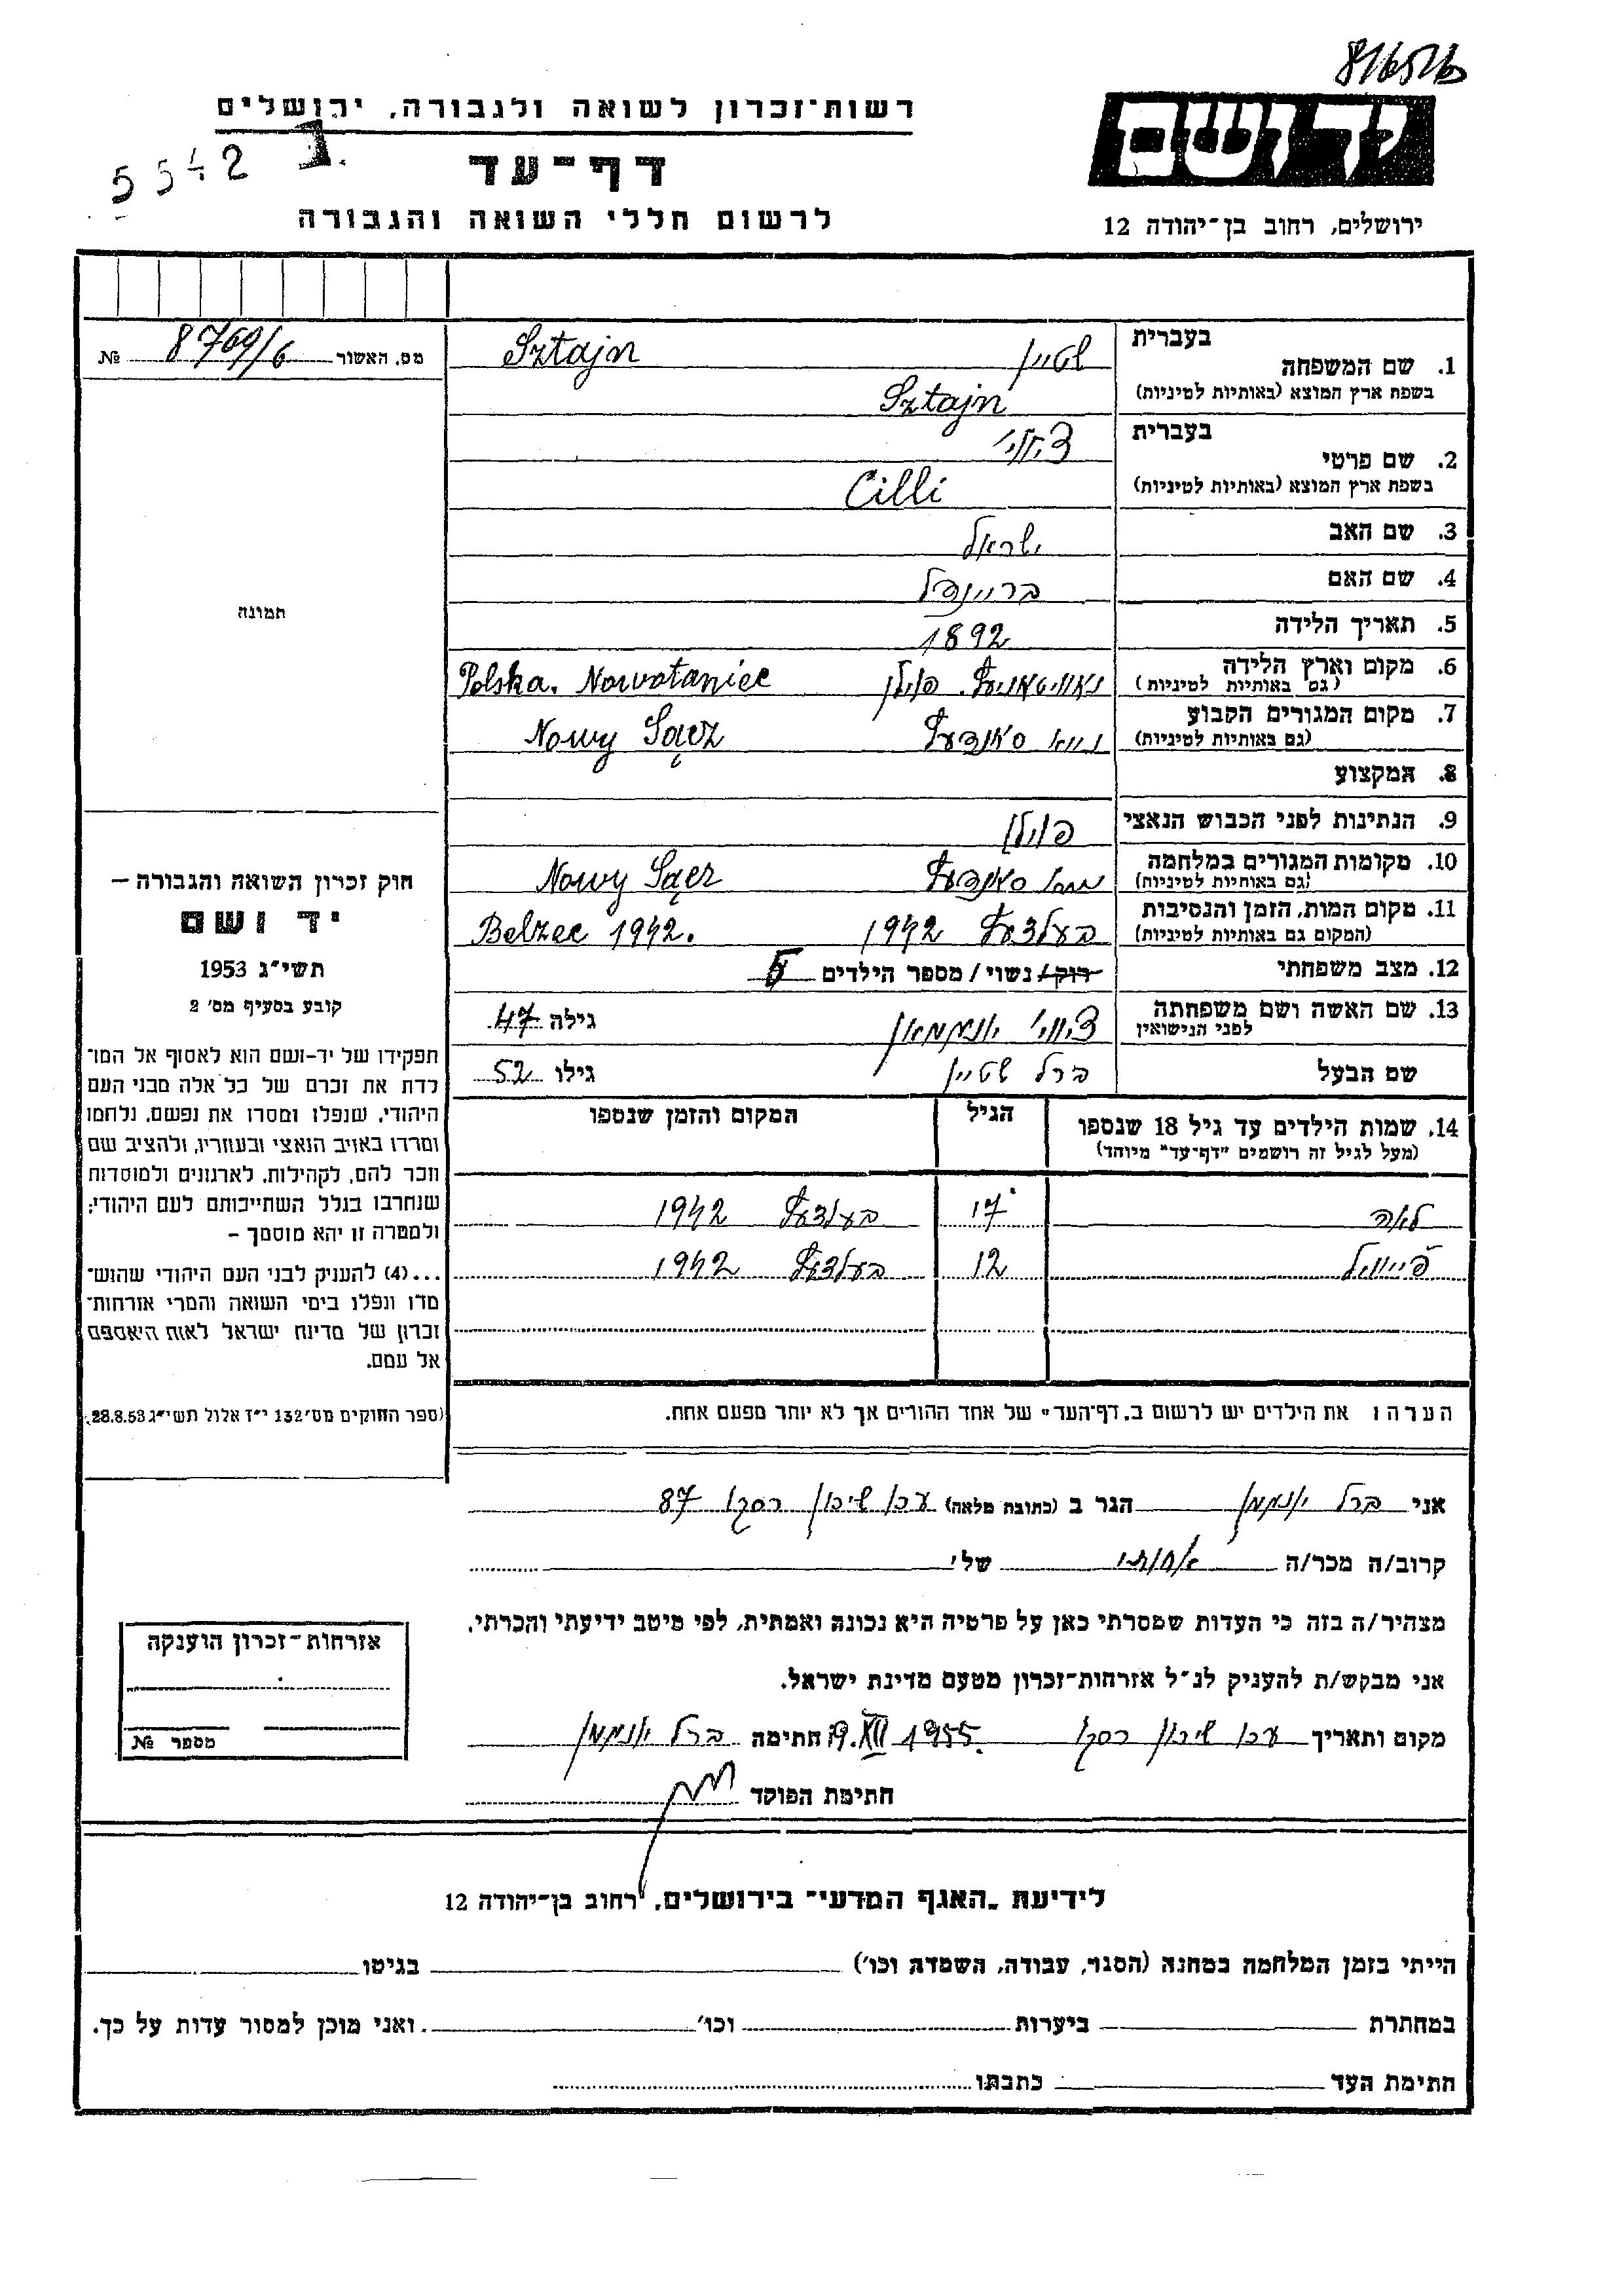 816526
רשות-זכרון לשואה ולגבורה, ירושלים
5542
דף-עד
לרשום חללי השואה והגבורה
יד ושם
ירושלים, רחוב בן-יהודה 12
מס. האשור 8769/6 №
1. שם המשפחה בעברית שטיין Sztajn
בשפת ארץ המוצא (באותיות לטיניות) Sztajn
2. שם פרטי בעברית צילי
בשפת ארץ המוצא (באותיות לטיניות) Cilli
3. שם האב ישראל
4. שם האם בריינדל
5. תאריך הלידה 1892
6. מקום וארץ הלידה (גם באותיות לטיניות) פולין Polska. Nowotaniec
7. מקום המגורים הקבוע (גם באותיות לטיניות) סאנדעץ Nowy Sącz
8. המקצוע
9. הנתינות לפני הכבוש הנאצי פולין
10. מקומות המגורים במלחמה (גם באותיות לטיניות) סאנדעץ Nowy Sącz
11. מקום המות, הזמן והנסיבות (המקום גם באותיות לטיניות) בעלזעץ 1942 Belzec 1942.
12. מצב משפחתי רוק / נשוי / מספר הילדים 5
13. שם האשה ושם משפחתה לפני הנישואין גילה 47
שם הבעל ברל שטיין גילו 52
14. שמות הילדים עד גיל 18 שנספו הגיל המקום והזמן שנספו
(מעל לגיל זה רושמים "דף-עד" מיוחד)
לאה 17 בעלזעץ 1942
פייוויל 12 בעלזעץ 1942
הערה: את הילדים יש לרשום ב"דף-העד" של אחד ההורים אך לא יותר מפעם אחת.
תמונה
חוק זכרון השואה והגבורה –
יד ושם
תשי"ג 1953
קובע בסעיף מס' 2
תפקידו של יד-ושם הוא לאסוף אל המו־
לדת את זכרם של כל אלה מבני העם
היהודי, שנפלו ומסרו את נפשם, נלחמו
ומרדו באויב הנאצי ובעוזריו, ולהציב שם
וזכר להם, לקהילות, לארגונים ולמוסדות
שנחרבו בגלל השתייכותם לעם היהודי;
ולמטרה זו יהא מוסמך –
...(4) להעניק לבני העם היהודי שהוש־
מדו ונפלו בימי השואה והמרי אזרחות־
זכרון של מדינת ישראל לאות היאספם
אל עמם.
(ספר החוקים מס' 132 י"ז אלול תשי"ג 28.8.53)
אני ברל הגר ב (כתובת מלאה) עכו שיכון רסקו 87
קרוב/ה מכר/ה אחותי של י
מצהיר/ה בזה כי העדות שמסרתי כאן על פרטיה היא נכונה ואמתית, לפי מיטב ידיעתי והכרתי.
אני מבקש/ת להעניק לנ"ל אזרחות-זכרון מטעם מדינת ישראל.
מקום ותאריך עכו שיכון רסקו 19.XII 1955. חתימה ברל
חתימת הפוקד
אזרחות-זכרון הוענקה
מספר №
לידיעת "האגף המדעי" בירושלים, רחוב בן-יהודה 12
הייתי בזמן המלחמה במחנה (הסגר, עבודה, השמדה וכו') בגיטו
במחתרת ביערות וכו' ואני מוכן למסור עדות על כך.
חתימת העד כתבתו